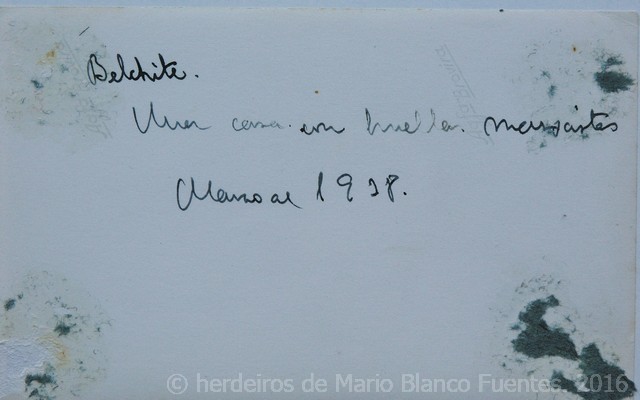 Belchite.
Una casa con huellas marxistas
Marzo de 1938.
© herdeiros de Mario Blanco Fuentes, 2016